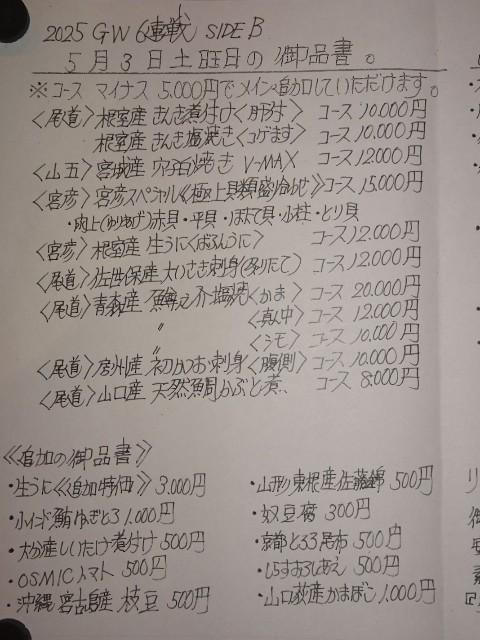 2025 GW 6連戦 SIDE B
5月3日土曜日の御品書。
※コース マイナス 5.000円でメイン追加していただけます。
〈尾道〉根室産 きんき煮付け〈肝付〉 コース 10.000円
根室産 きんき塩焼き〈コゲます〉 コース 10.000円
〈山五〉宮城産 穴子白焼き V-MAX コース 12.000円
〈宮彦〉宮彦スペシャル《極上貝類盛り合わせ》コース 15.000円
・内上(ゆりあげ)赤貝・平貝・ほたて貝・小柱・とり貝
〈宮彦〉根室産 生うに〈ばふんうに〉 コース 12.000円
〈尾道〉佐世保産 大いさき刺身 コース 12.000円
〈尾道〉青森産 塩焼〈かま〉 コース 20.000円
〃 〈真ん中〉 コース 12.000円
〃 〈シモ〉 コース 10.000円
〈尾道〉房州産 初かつお刺身〈腹側〉 コース 10.000円
〈尾道〉山口産 天然鯛かぶと煮 コース 8.000円
《追加の御品書》
・生うに《追加特価》3.000円
・インド鮪ねぎとろ 1.000円
・大分産しいたけ煮付け 500円
・OSMICトマト 500円
・沖縄 宮古島産 枝豆 500円
・山形 東根産 佐藤錦 500円
・奴豆腐 300円
・京都とろろ昆布 500円
・しらすおろしあえ 500円
・山口萩産かまぼこ 1.000円